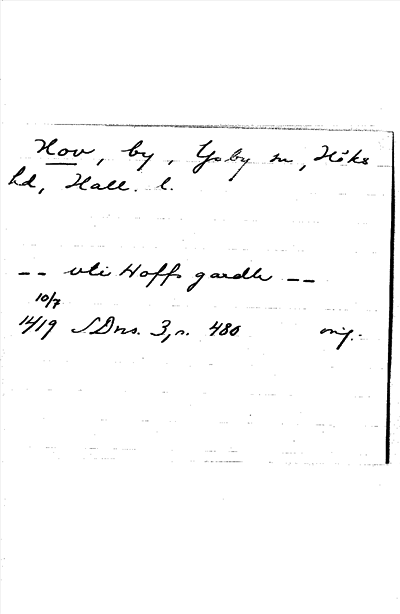 Hov, by, Ysby sn, Höks
hd, Hall. l.
-- vti Hoffs gardh --
10/7
1419 SDns. 3, s. 480 orig.